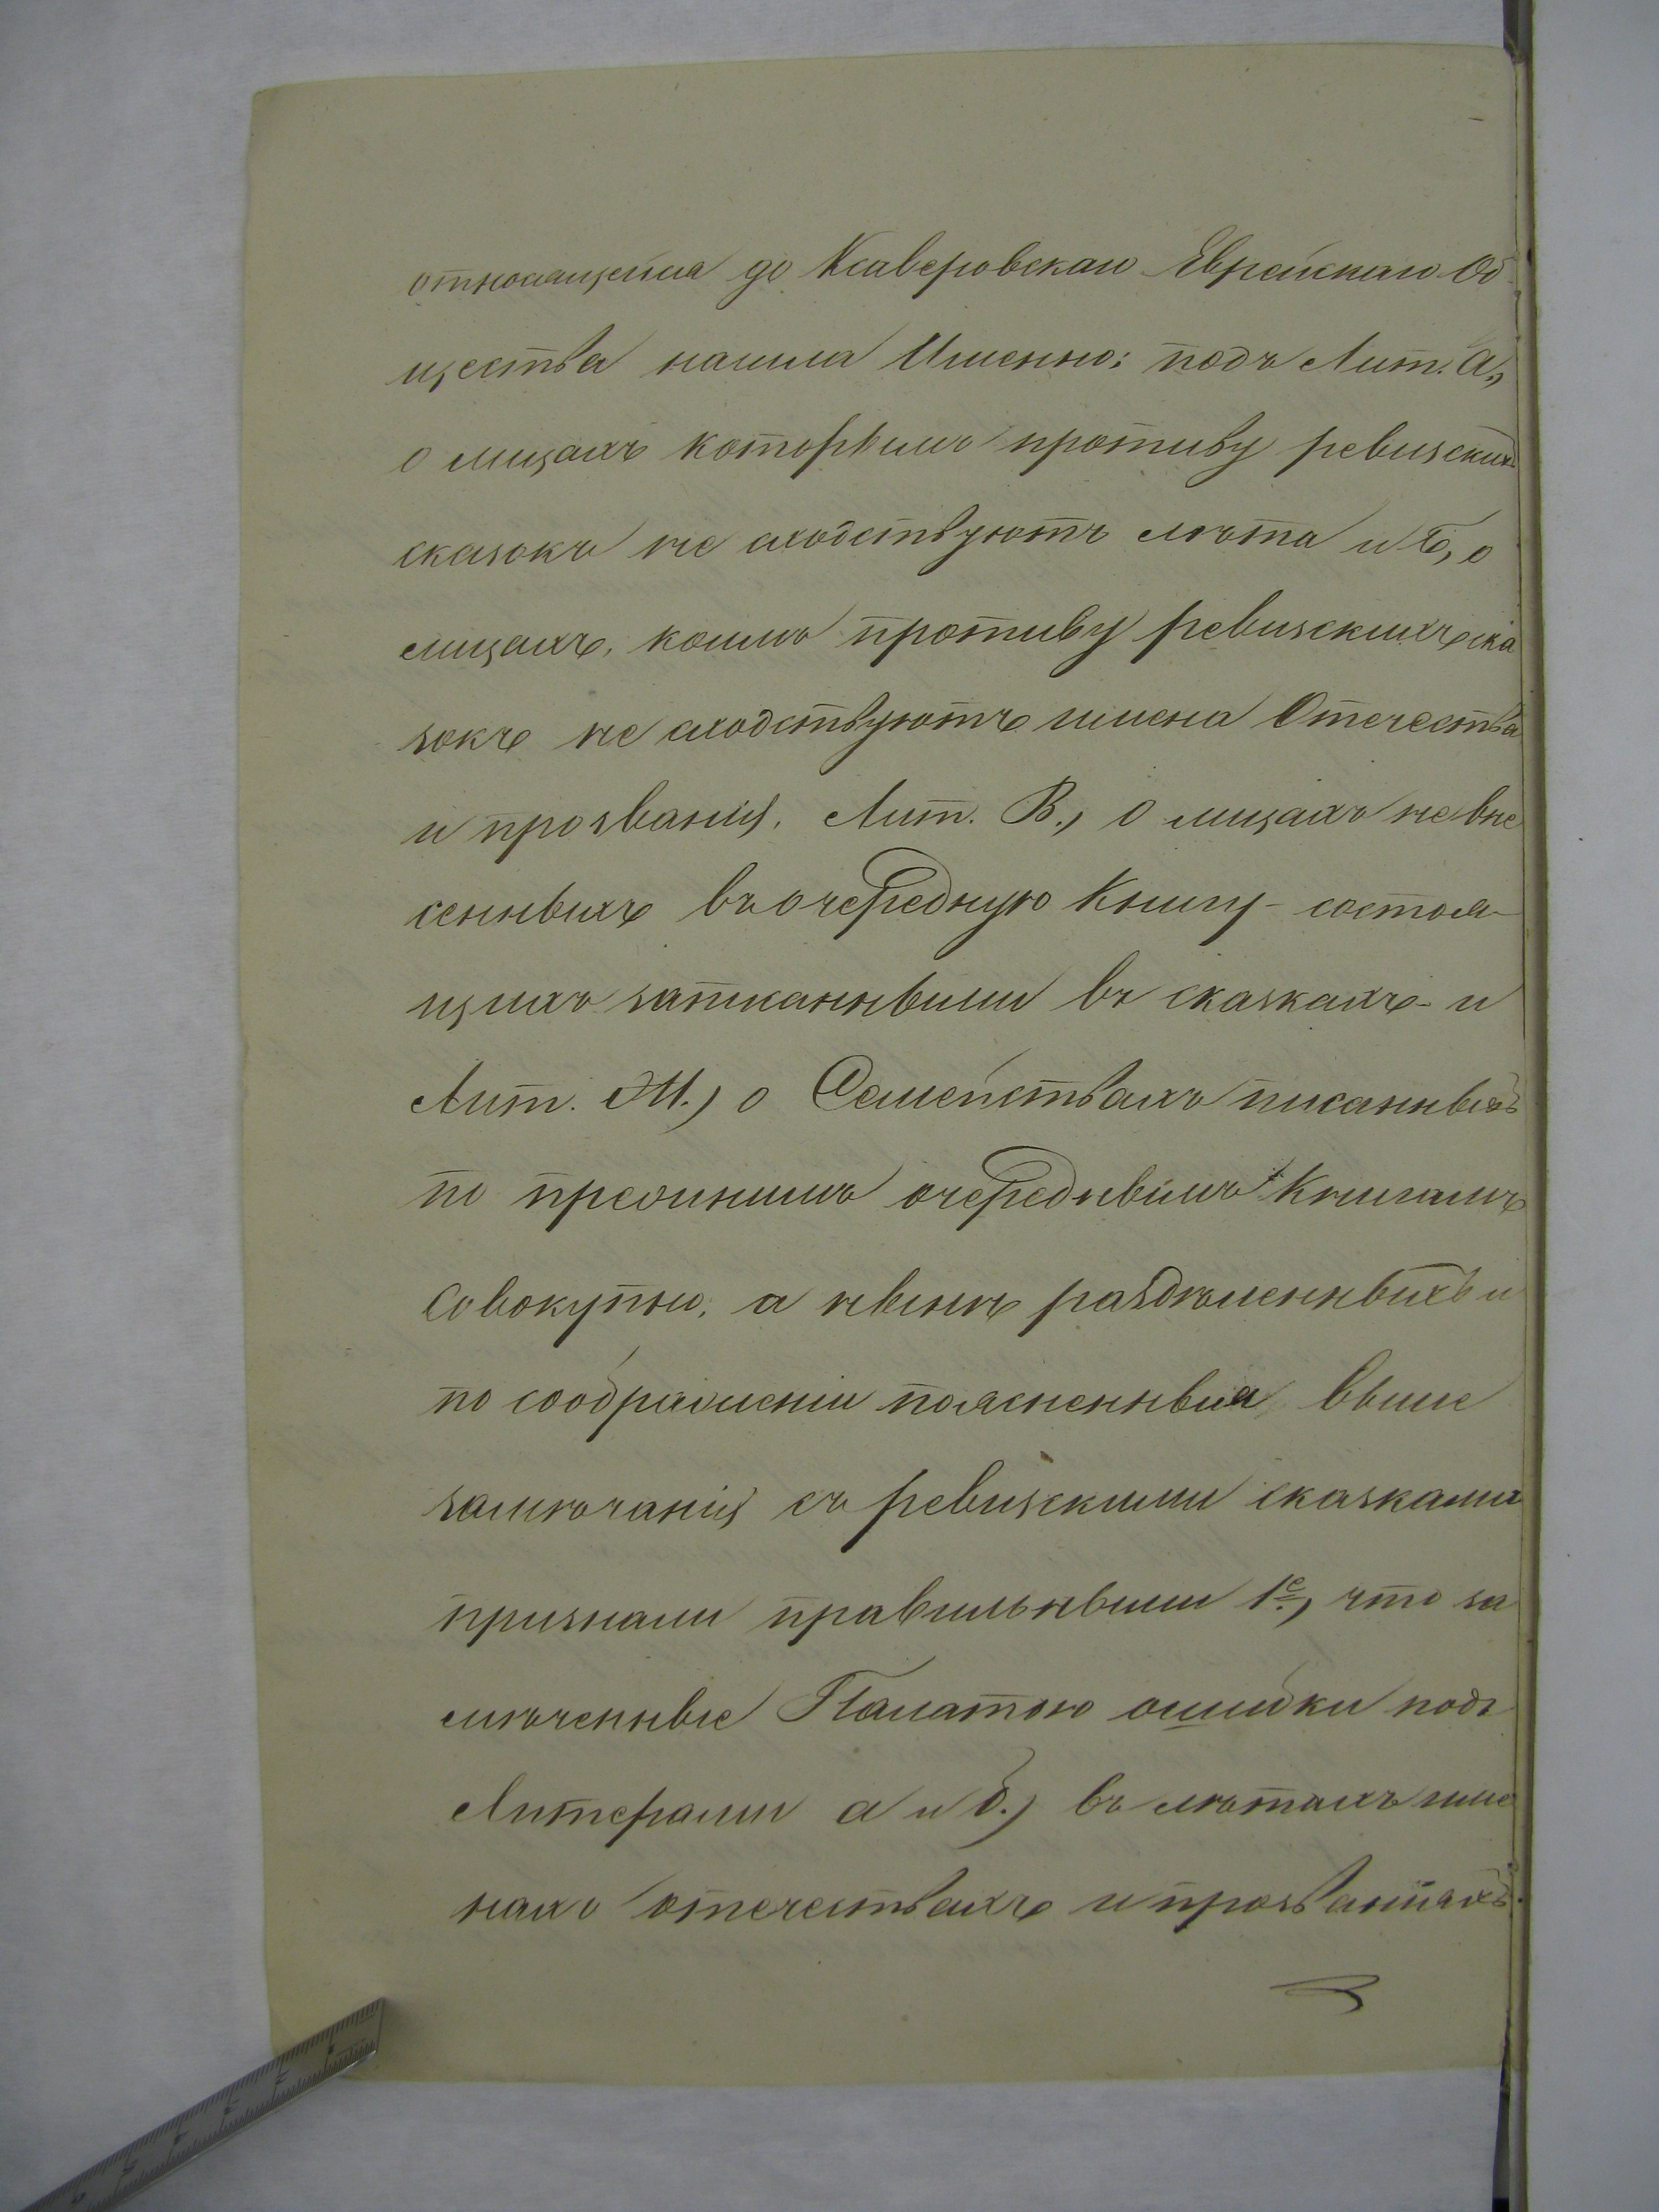 относящейся до Ксаверовскаго Еврейскаго Об
щества нашла Именно: подъ Лит. а,
о лицахъ которымъ противу ревизскихъ
сказокъ не сходствуютъ лѣта и б, о
лицахъ, коимъ противу ревизскихъ ска
зокъ не сходствуютъ имена Отечества
и прозванія, Лит. В., о лицахъ невне
сенныхъ въ очередную Книгу - состоя-
щихъ записанными въ сказкахъ - и
Лит. Ж., о Семействахъ писанныхъ
по прежнимъ очереднымъ Книгамъ
Совокупно, а нынѣ раздѣленныхъ и
по соображеніи поясненныя выше
замѣчанія съ ревизскими сказками
признали правильными 1е, что за
мѣченные Палатою ошибки подъ
Литерами а и б., въ лѣтахъ име
нахъ отечествахъ и прозваніяхъ